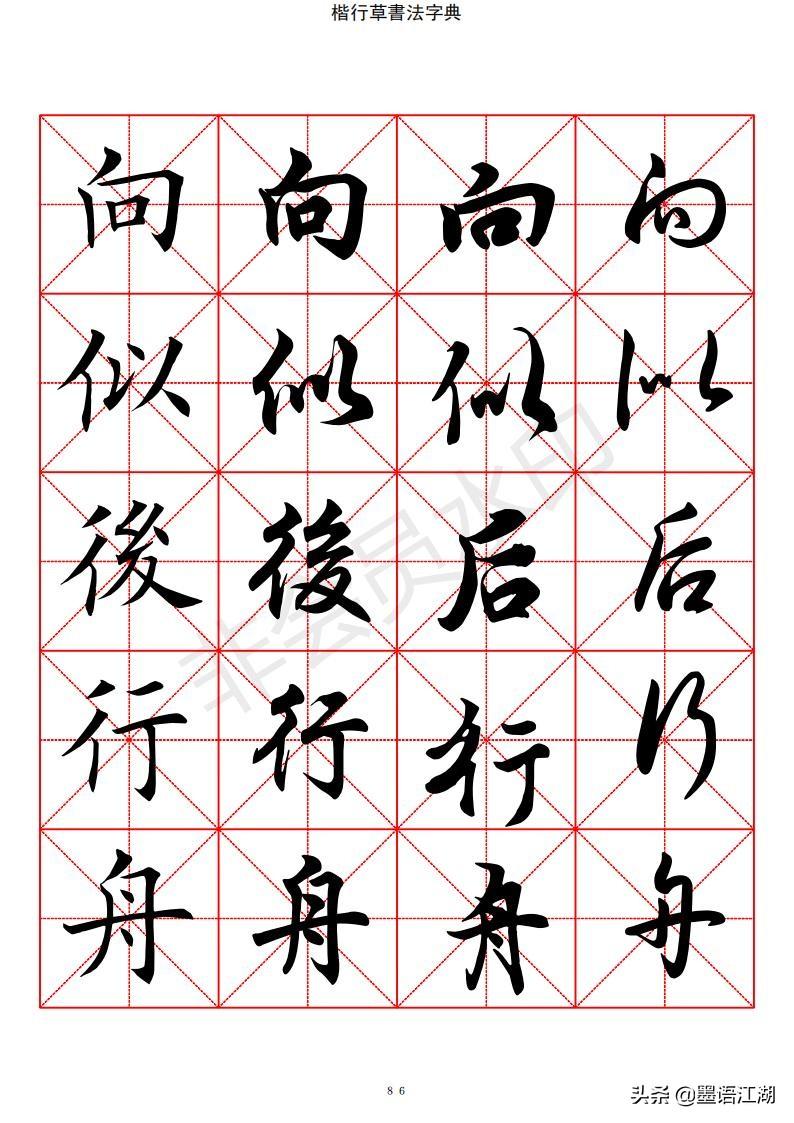 楷行草書法字典
向 向 向 向
似 似 似 似
後 後 后 后
行 行 行 行
舟 舟 舟 舟
非会员水印
8 6
头条 @墨语江湖